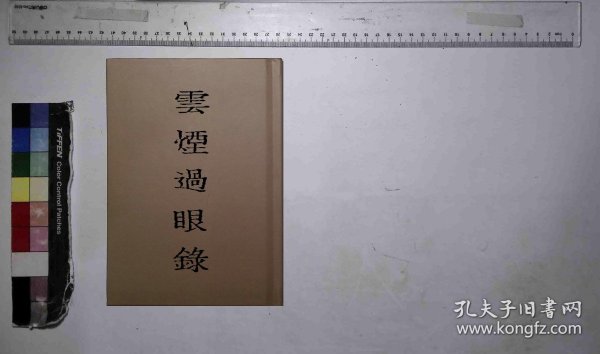 雲煙過眼錄
TIFFEN Color Control Patches
孔夫子旧书网
www.kongfz.com